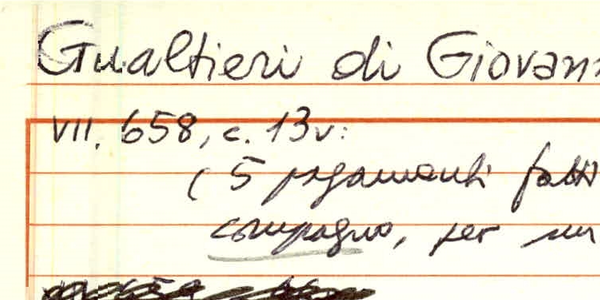 Gualtieri di Giovann
VII. 658, c. 13v:
( 5 pagamenti fatti
compagno, per un